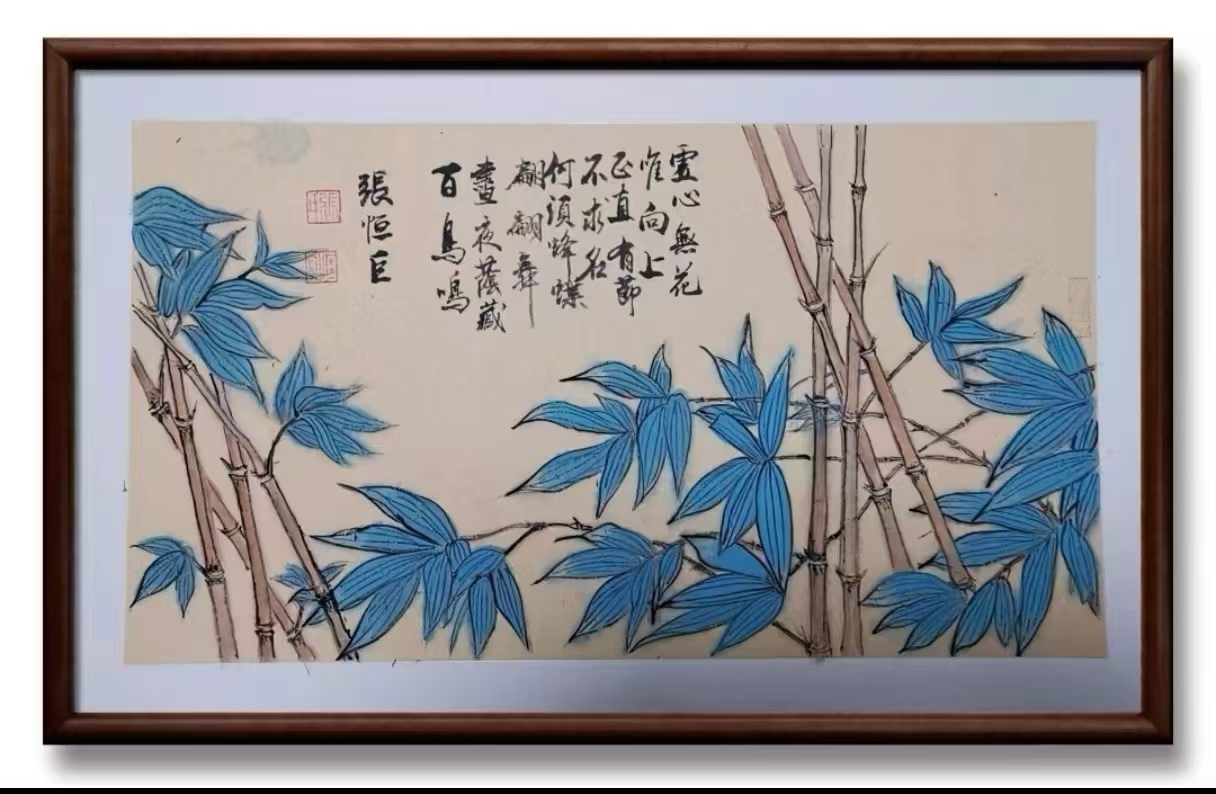 虛心無花
唯向上
正直有節
不求名
何須蜂蝶
翩翩舞
晝夜蔭藏
百鳥鳴
張恒巨